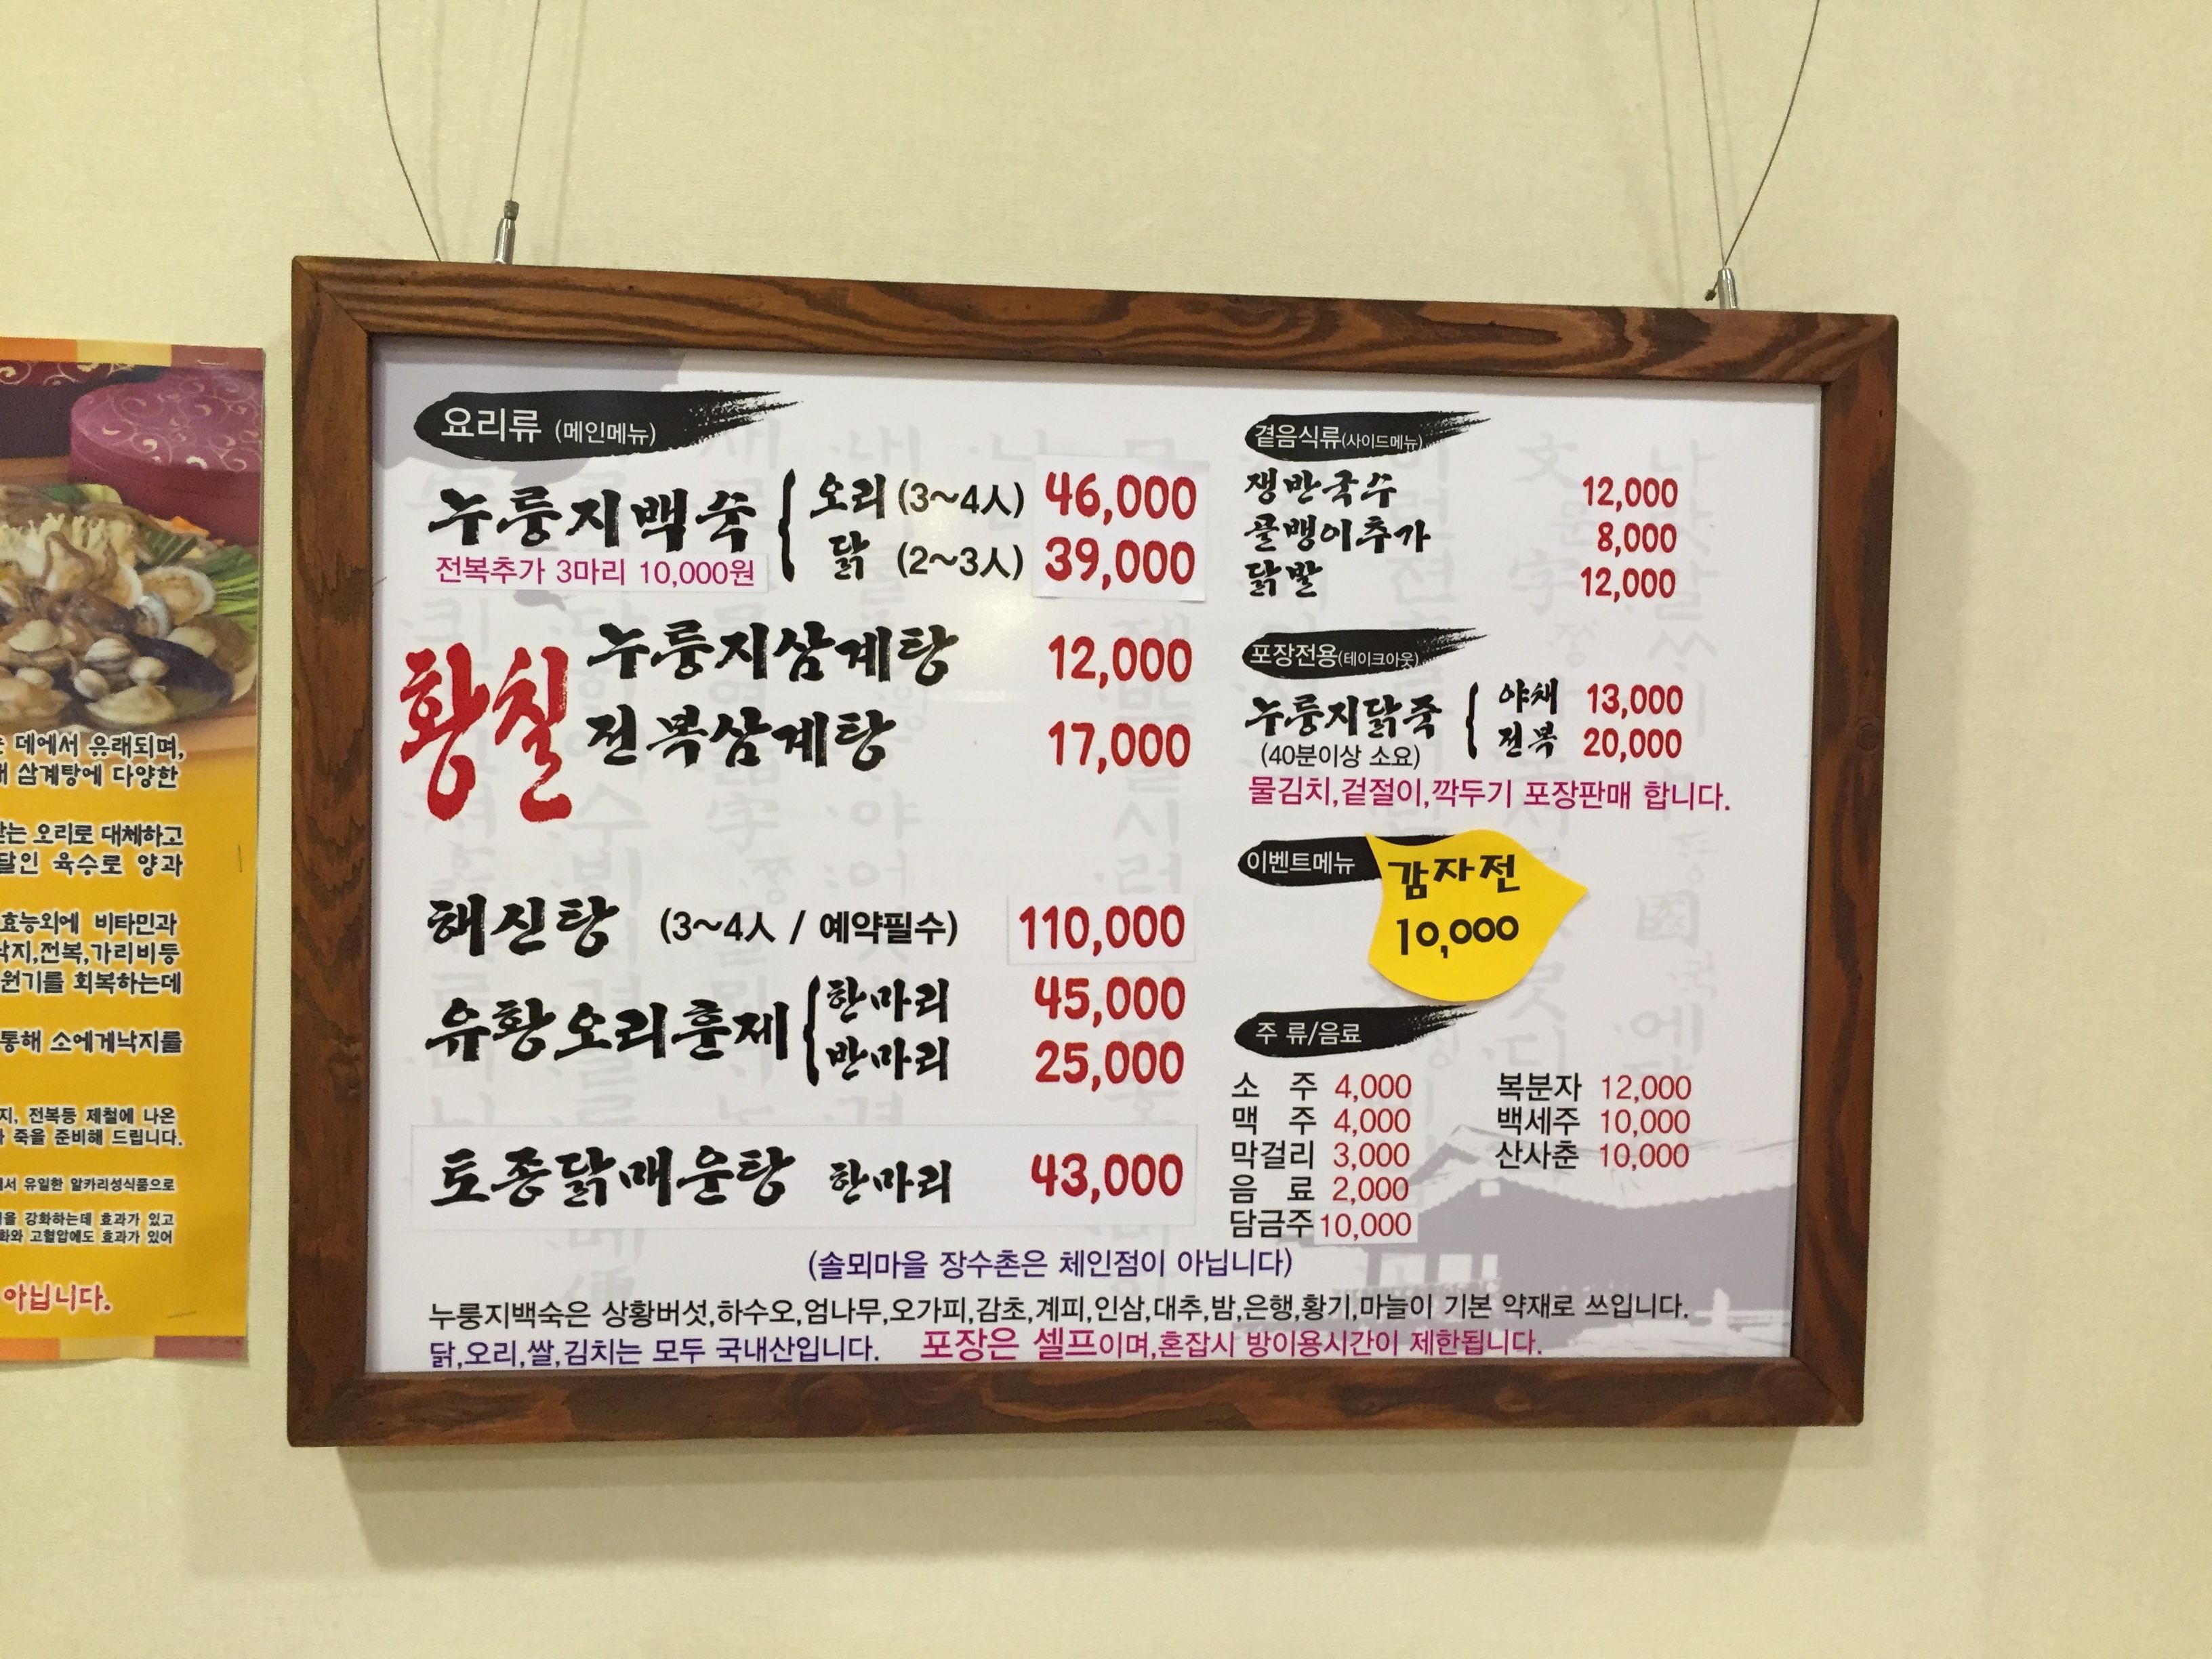 요리류 (메인메뉴)
누룽지백숙 오리 (3~4人) 46,000
닭 (2~3人) 39,000
전복추가 3마리 10,000원
황칠
누룽지삼계탕 12,000
전복삼계탕 17,000
해신탕 (3~4人 / 예약필수) 110,000
유황오리훈제 한마리 45,000
반마리 25,000
토종닭매운탕 한마리 43,000
곁음식류(사이드메뉴)
쟁반국수 12,000
골뱅이추가 8,000
닭발 12,000
포장전용(테이크아웃)
누룽지닭죽 야채 13,000
(40분이상 소요) 전복 20,000
물김치,겉절이,깍두기 포장판매 합니다.
이벤트메뉴
감자전
10,000
주 류/음료
소 주 4,000 복분자 12,000
맥 주 4,000 백세주 10,000
막걸리 3,000 산사춘 10,000
음 료 2,000
담금주 10,000
(솔뫼마을 장수촌은 체인점이 아닙니다)
누룽지백숙은 상황버섯,하수오,엄나무,오가피,감초,계피,인삼,대추,밤,은행,황기,마늘이 기본 약재로 쓰입니다.
닭,오리,쌀,김치는 모두 국내산입니다. 포장은 셀프이며,혼잡시 방이용시간이 제한됩니다.
데에서 유래되며,
삼계탕에 다양한
오리로 대체하고
달인 육수로 양과
효능외에 비타민과
낙지,전복,가리비등
원기를 회복하는데
통해 소에게낙지를
전복등 제철에 나온
죽을 준비해 드립니다.
유일한 알카리성식품으로
강화하는데 효과가 있고
고혈압에도 효과가 있어
아닙니다.